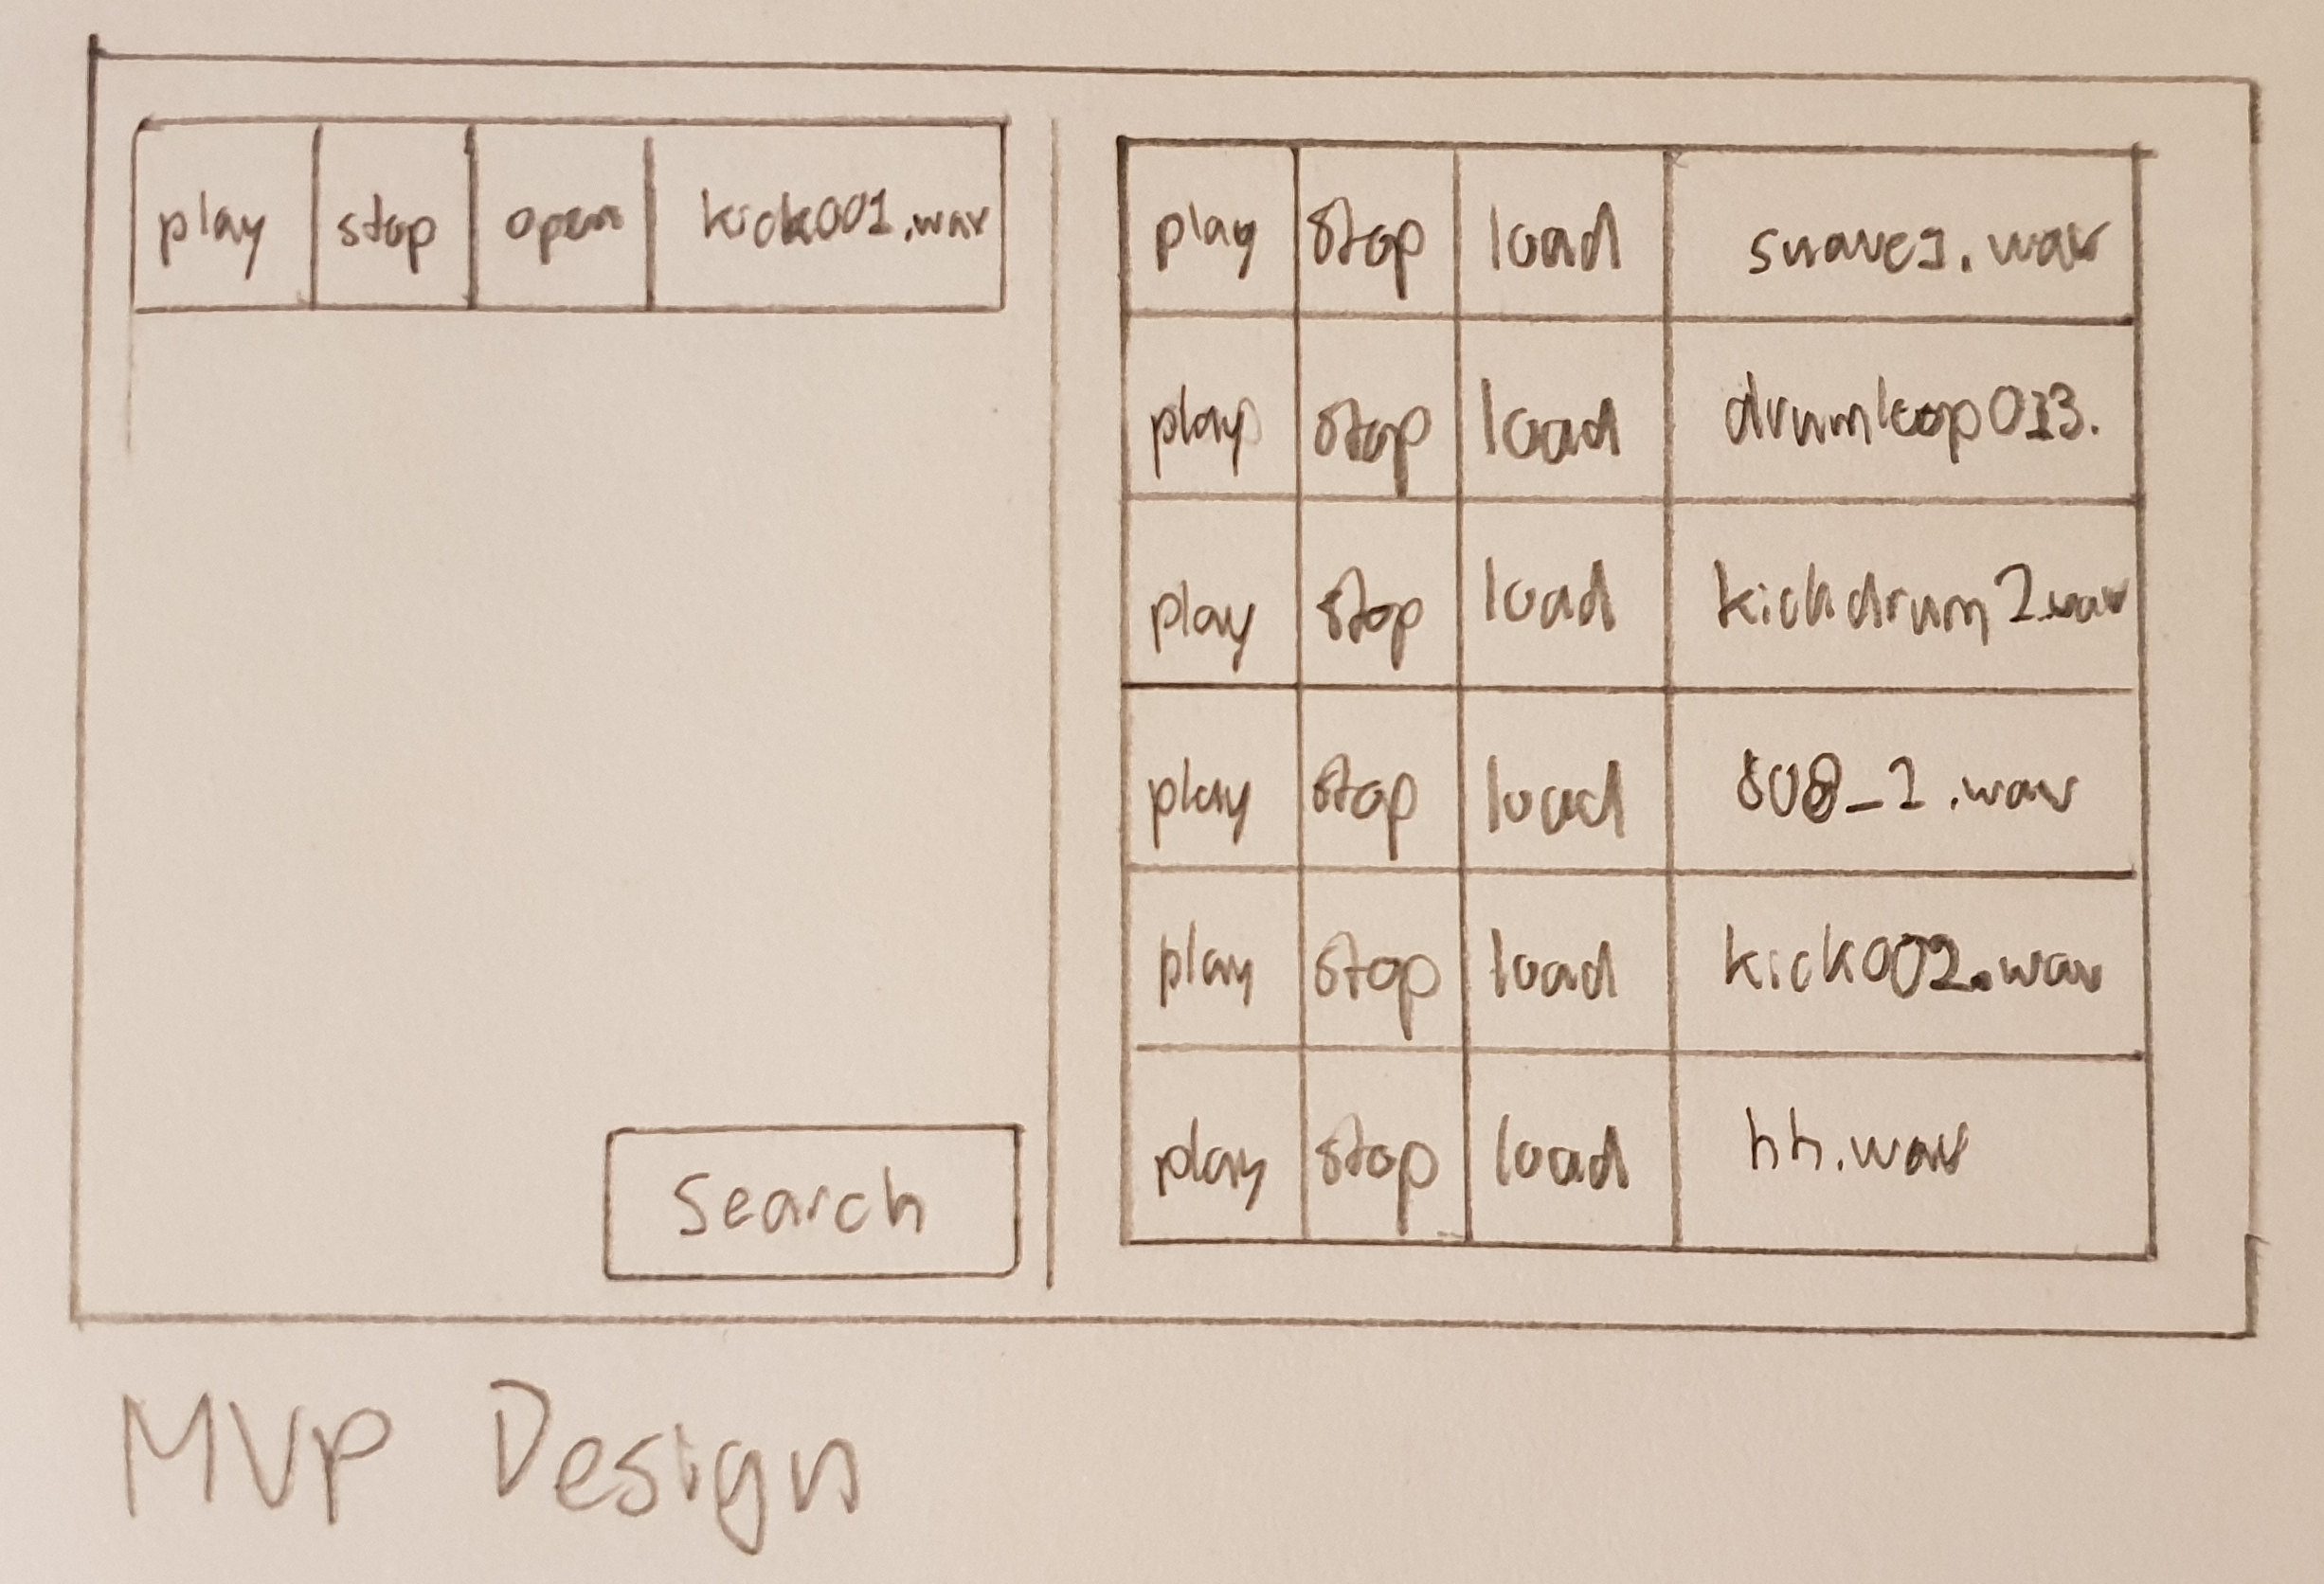 play stop open kick001.wav
Search
play stop load snare1.wav
play stop load drumloop013.
play stop load kickdrum2.wav
play stop load 808_1.wav
play stop load kick002.wav
play stop load hh.wav
MVP Design